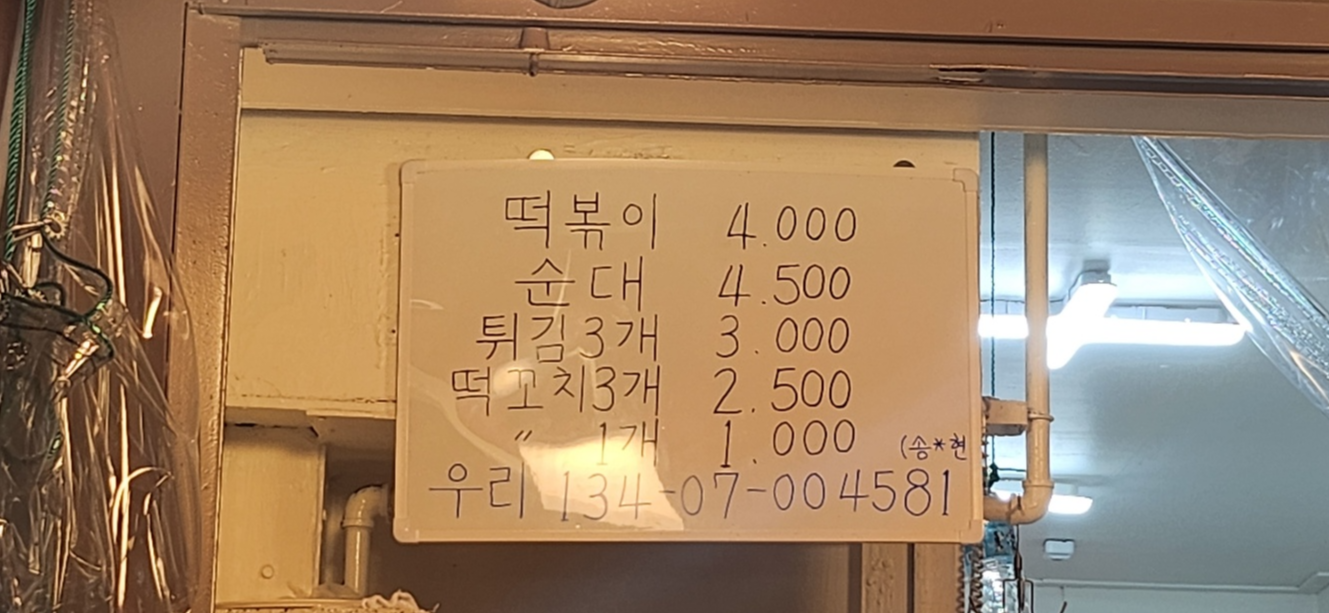 떡볶이 4.000
순대 4.500
튀김3개 3.000
떡꼬치3개 2.500
〃 1개 1.000 (송*현
우리 134-07-004581